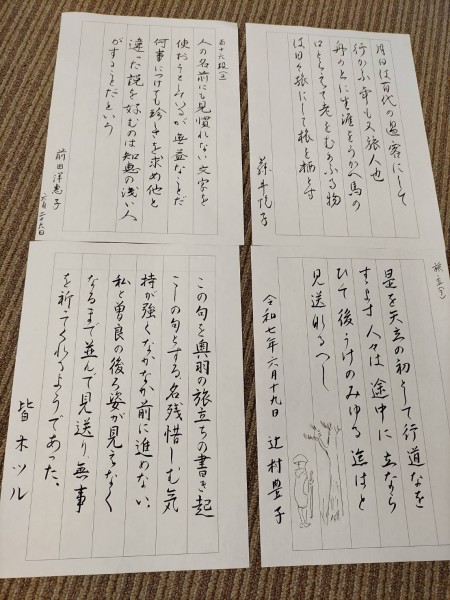 月日は百代の過客にして
行かふ年も又旅人也
舟の上に生涯をうかへ馬の
口とらえて老をむかふる物
は日々旅にして旅を栖とす
百十六段(全)
人の名前にも見慣れない文字を
使おうとしているが無益なことだ
何事につけても珍しさを求め他と
違った説を好むのは知恵の浅い人
がすることだという
前田洋恵子
六月二十九日
旅立(全)
是を矢立の初として行道なを
すゝます人々は途中に立ならひて
後かけのみゆる迄はと
見送なるへし
令和七年六月十九日 辻村豊子
この句を奥羽の旅立ちの書き起
こしの句とする。名残惜しむ気
持が強くなかなか前に進めない。
私と曽良の後ろ姿が見えなく
なるまで並んで見送り、無事
を祈ってくれるようであった。
皆木ツル